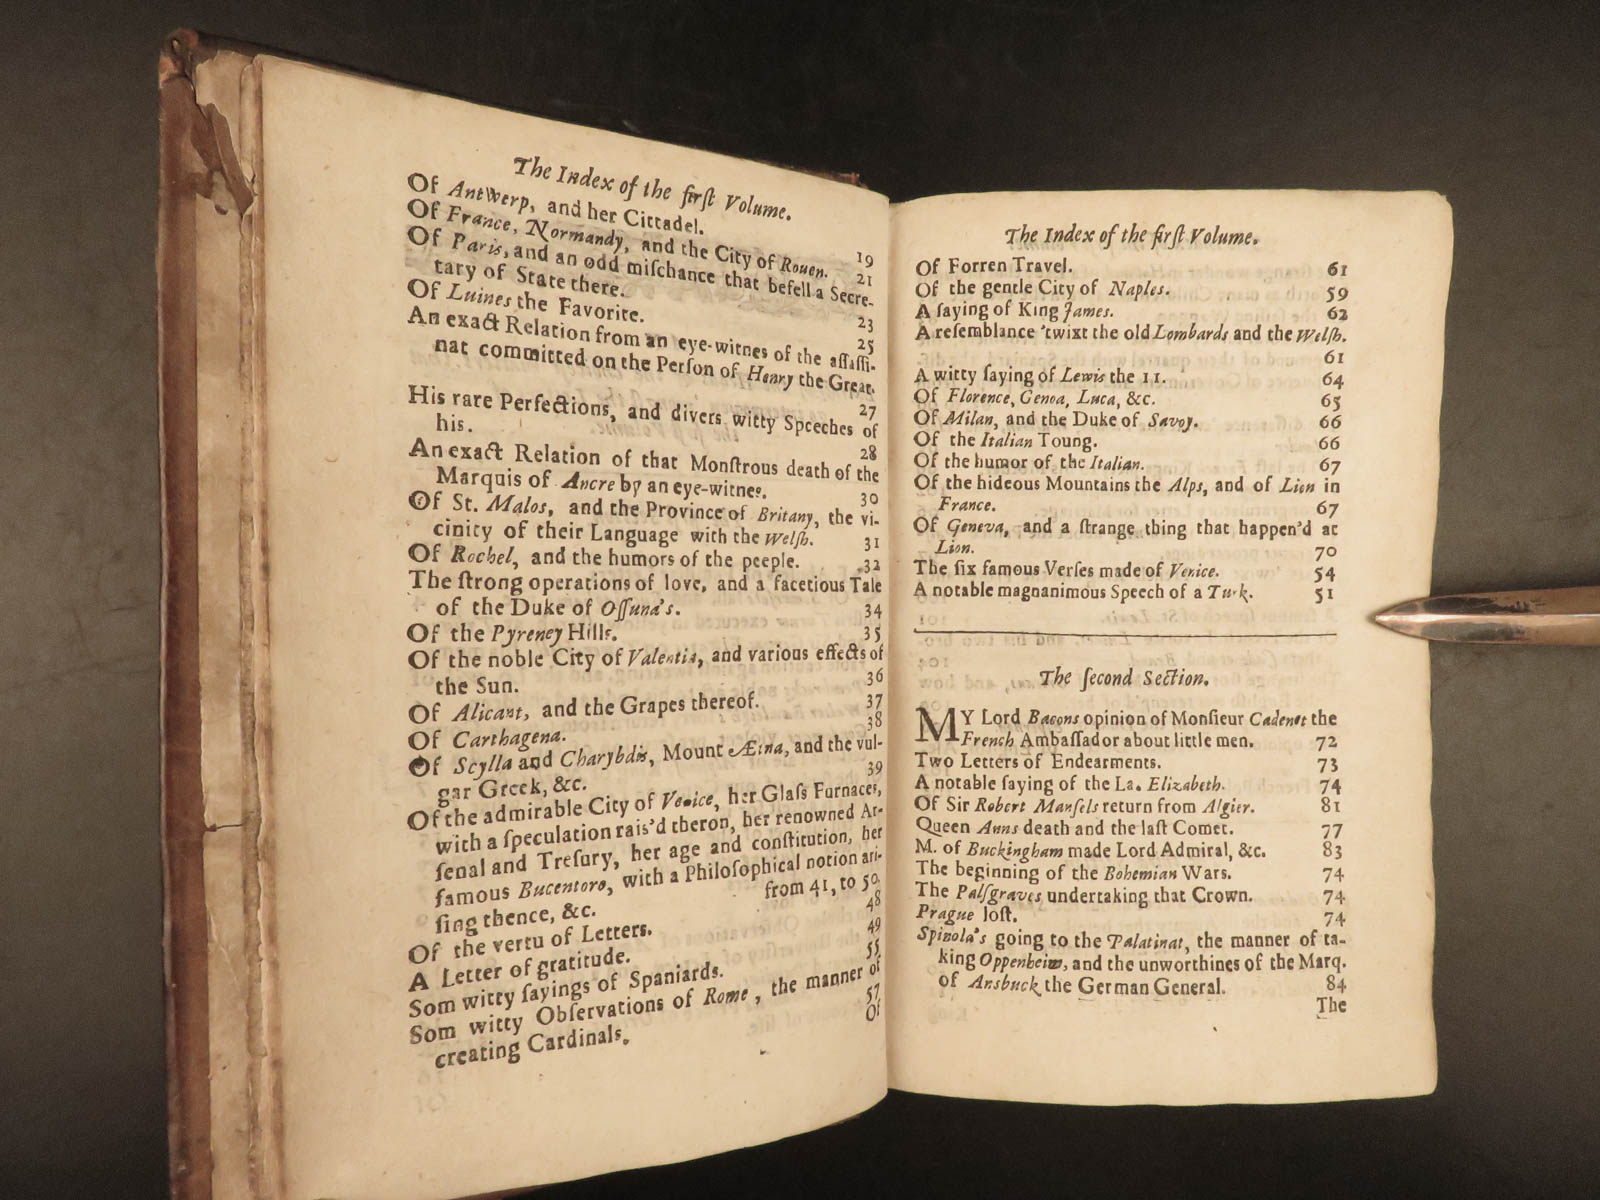 The Index of the first Volume.
Of Antwerp, and her Cittadel. 19
Of France, Normandy, and the City of Rouen. 21
Of Paris, and an odd mischance that befell a Secre-
tary of State there. 23
Of Luines the Favorite. 25
An exact Relation from an eye-witnes of the assassi-
nat committed on the Person of Henry the Great.
27
His rare Perfections, and divers witty Speeches of
his. 28
An exact Relation of that Monstrous death of the
Marquis of Ancre by an eye-witnes. 30
Of St. Malos, and the Province of Britany, the vi-
cinity of their Language with the Welsh. 31
Of Rochel, and the humors of the peeple. 32
The strong operations of love, and a facetious Tale
of the Duke of Ossuna's. 34
Of the Pyreney Hills. 35
Of the noble City of Valentia, and various effects of
the Sun. 36
Of Alicant, and the Grapes thereof. 37
Of Carthagena. 38
Of Scylla and Charybdis, Mount Ætna, and the vul-
gar Greek, &c. 39
Of the admirable City of Venice, her Glass Furnaces,
with a speculation rais'd theron, her renowned Ar-
senal and Tresury, her age and constitution, her
famous Bucentoro, with a Philosophical notion ari-
sing thence, &c. from 41, to 50.
Of the vertu of Letters. 48
A Letter of gratitude. 49
Som witty sayings of Spaniards. 55
Som witty Observations of Rome, the manner of
creating Cardinals. 57
Of
The Index of the first Volume.
Of Forren Travel. 61
Of the gentle City of Naples. 59
A saying of King James. 62
A resemblance 'twixt the old Lombards and the Welsh.
61
A witty saying of Lewis the 11. 64
Of Florence, Genoa, Luca, &c. 65
Of Milan, and the Duke of Savoy. 66
Of the Italian Toung. 66
Of the humor of the Italian. 67
Of the hideous Mountains the Alps, and of Lion in
France. 67
Of Geneva, and a strange thing that happen'd at
Lion. 70
The six famous Verses made of Venice. 54
A notable magnanimous Speech of a Turk. 51
The second Section.
MY Lord Bacons opinion of Monsieur Cadenet the
French Ambassador about little men. 72
Two Letters of Endearments. 73
A notable saying of the La. Elizabeth. 74
Of Sir Robert Mansels return from Algier. 81
Queen Anns death and the last Comet. 77
M. of Buckingham made Lord Admiral, &c. 83
The beginning of the Bohemian Wars. 74
The Palsgraves undertaking that Crown. 74
Prague lost. 74
Spinola's going to the Palatinat, the manner of ta-
king Oppenheim, and the unworthines of the Marq.
of Ansbuck the German General. 84
The